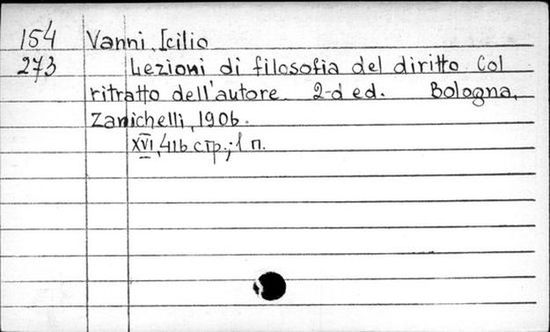 154 Vanni, Icilio
273 Lezioni di filosofia del diritto. Col
ritratto dell'autore. 2-d ed. Bologna,
Zanichelli, 1906.
XVI, 416 стр.; 1 п.